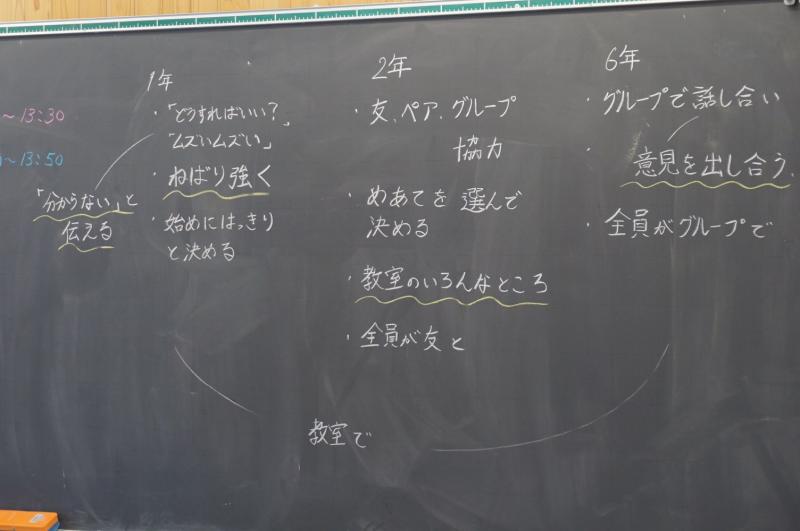 〜13:30
〜13:50
1年
・「どうすればいい?」
「ムズいムズい」
・ねばり強く
「分からない」と
伝える
・始めにはっきり
と決める
2年
・友、ペア、グループ
協力
・めあてを選んで
決める
・教室のいろんなところ
・全員が友と
6年
・グループで話し合い
・意見を出し合う.
・全員がグループで
教室で